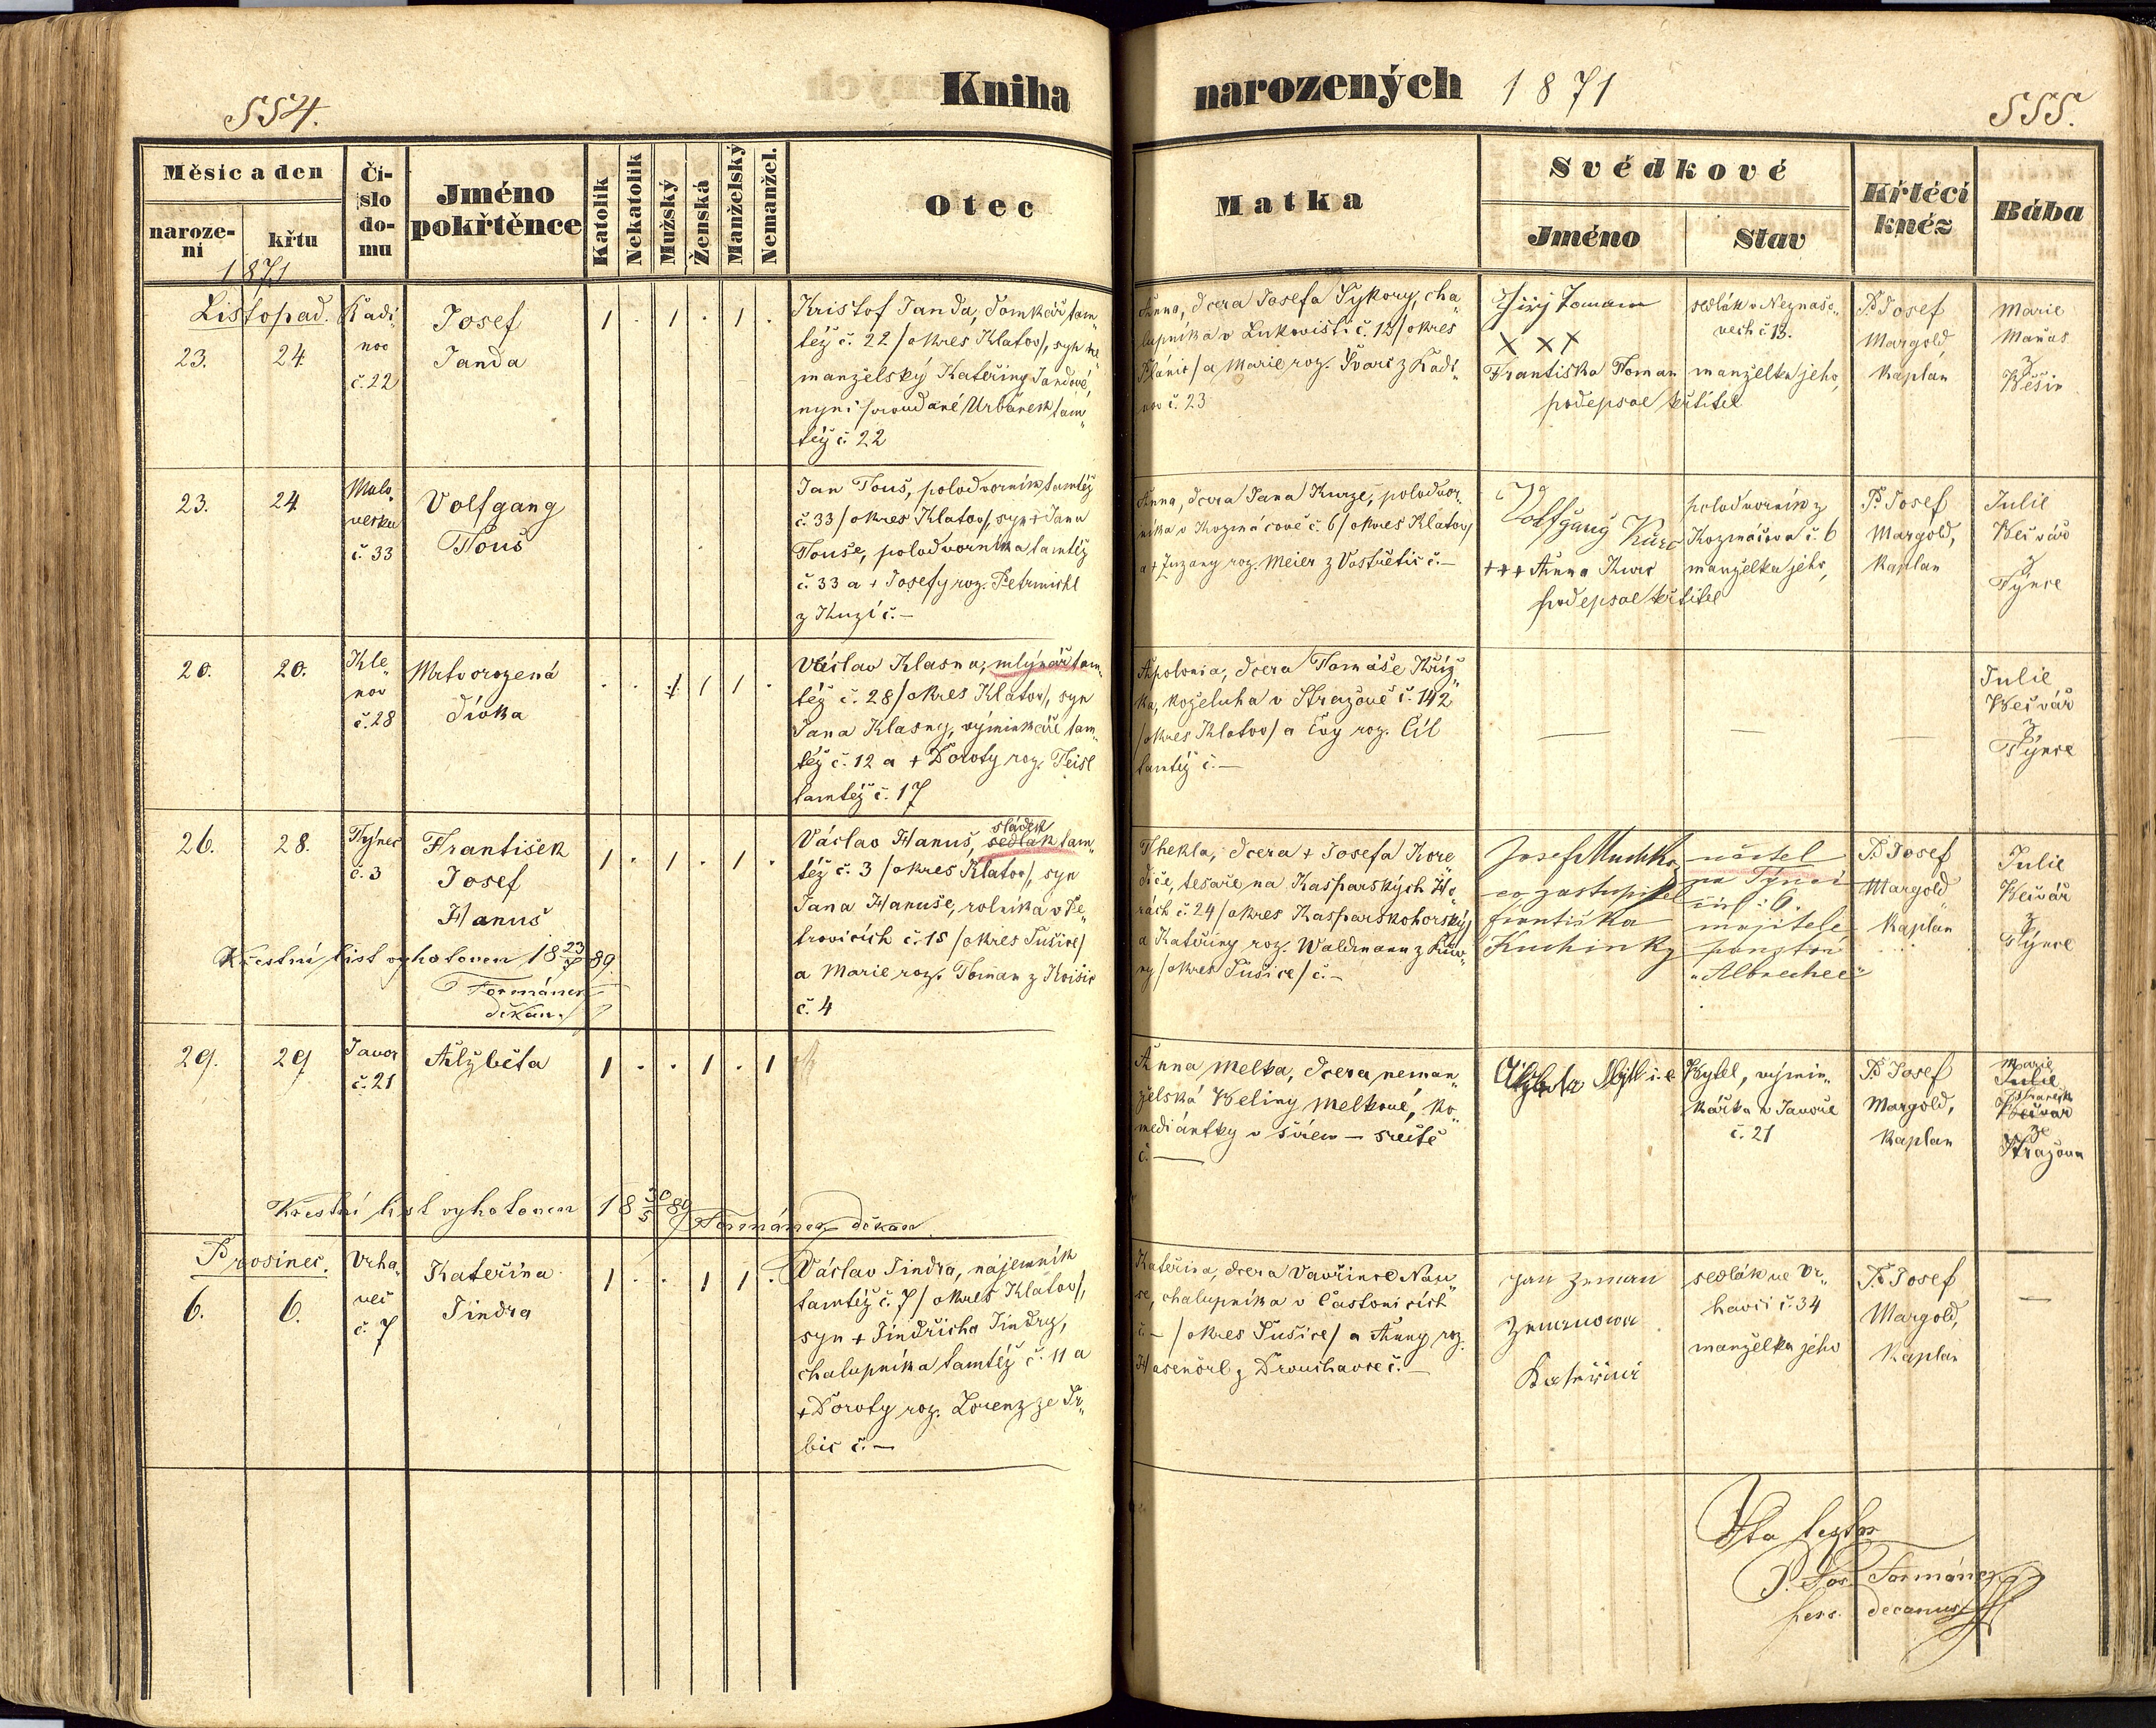 Kniha
narozených 1871
554.
555.
Měsíc a den
naroze-
ní
křtu
1871
Čí-
slo
do-
mu
Jméno
pokřtěnce
Katolík
Nekatolík
Mužský
Ženská
Manželský
Nemanžel.
Otec
Matka
Svědkové
Jméno
Stav
Křtécí
kněz
Bába
Listopad.
23. 24.
Kadi-
nov
č. 22
Josef
Janda
1 . 1 . 1 .
Kristof Janda, domkář tam„
též č. 22 /okres Klatov/, syn ne„
manželský Kateřiny Jandové,
nyní provdané Urbánek tam„
též č. 22
Anna, dcera Josefa Sykory, cha„
lupníka v Lukovišti č. 13 /okres
Plánic/ a Marie roz. Švarc z Kadi„
nov č. 23
Jiří Toman
X X X
Františka Toman
podepsal křtitel
sedlák v Neznašo„
vech č 13.
manželka jeho,
P. Josef
Margold
Kaplán
Marie
Maňas
z
Běšin
23. 24
Malo-
veska
č. 33
Volfgang
Touš
Jan Touš, polodvorník tamtéž
č. 33 /okres Klatov/, syn + Jana
Touše, polodvorníka tamtéž
č. 33 a + Josefy roz. Petrmichl
z Kuzí č. —
Anna, dcera Jana Kurze, polodvor„
níka v Kozmáčově č. 6 /okres Klatov/
a + Zuzany roz. Meier z Vostřetic č. —
Volfgang Kurc
+++ Anna Kurc
podepsal křtitel
polodvorník z
Kozmáčova č. 6
manželka jeho,
P. Josef
Margold,
Kaplan
Julie
Bečvář
z
Týnce
20. 20.
Kle„
nov
č. 28
Mrtvorozená
dívka
. . 1 1 1 .
Václav Klasna, mlýnář tam„
též č. 28 /okres Klatov/, syn
Jana Klasny, výminkáře tam„
též č. 12 a + Doroty roz. Teisl
tamtéž č. 17
Apolonia, dcera Tomáše Kříž„
ka, koželuha v Stražově č. 142
/okres Klatov/ a Evy roz. Cíl
tamtéž č. —
— — —
Julie
Bečvář
z
Týnce
26. 28.
Týnec
č. 3
František
Josef
Hanuš
1 . 1 . 1 .
Křestní list vyhotoven 18 23/7 89.
Formánek
děkan.
sládek
Václav Hanuš, sedlák tam„
též č. 3 /okres Klatov/, syn
Jana Hanuše, rolníka v Pe„
trovicích č. 15 /okres Sušice/
a Marie roz. Toman z Kojšic
č. 4
Thekla, dcera + Josefa Kore„
, tesaře na Kašparských Ho„
rách č. 24 /okres Kašparskohorský/
a Kateřiny roz. Waldmann z
/okres Sušice/ č. —
Josef Muchka
co zastupitel
Františka
Kuchinky
učitel
na Týnci
čís: 6.
majitele
panství
„Albrechec“
P. Josef
Margold
Kaplan
Julie
Bečvář
z
Týnce
29. 29
Javor
č. 21
Alžběta
1 . . 1 . 1
Křestní list vyhotoven 18 30/5 89 Formánek děkan
Anna Melka, dcera neman„
želská Veliny Melkové, ko„
mediántky v širém — světě
č. —
Alžběta
Kytl, výmin„
kářka v Javoře
č. 21
P. Josef
Margold,
Kaplan
Marie
Julie
Bečvář
ze
Stražova
Prosinec.
6. 6.
Vrha„
več
č. 7
Kateřina
Jindra
1 . . 1 1 .
Václav Jindra, nájemník
tamtéž č. 7 /okres Klatov/,
syn + Jindřicha Jindry,
chalupníka tamtéž č. 11 a
+ Doroty roz. Lorenz ze Sr„
bic č. —
Kateřina, dcera Vavřince Nau„
se, chalupníka v Častonicích
č. — /okres Sušice/ a Anny roz.
Hasenörl z Drouhavce č. —
Jan Zeman
Zemanowa
Kateřina
sedlák ve Vr„
havči č. 34
manželka jeho
P. Josef
Margold,
Kaplan
—
Ita testor
P. Jos. Formánek
pers. decanus